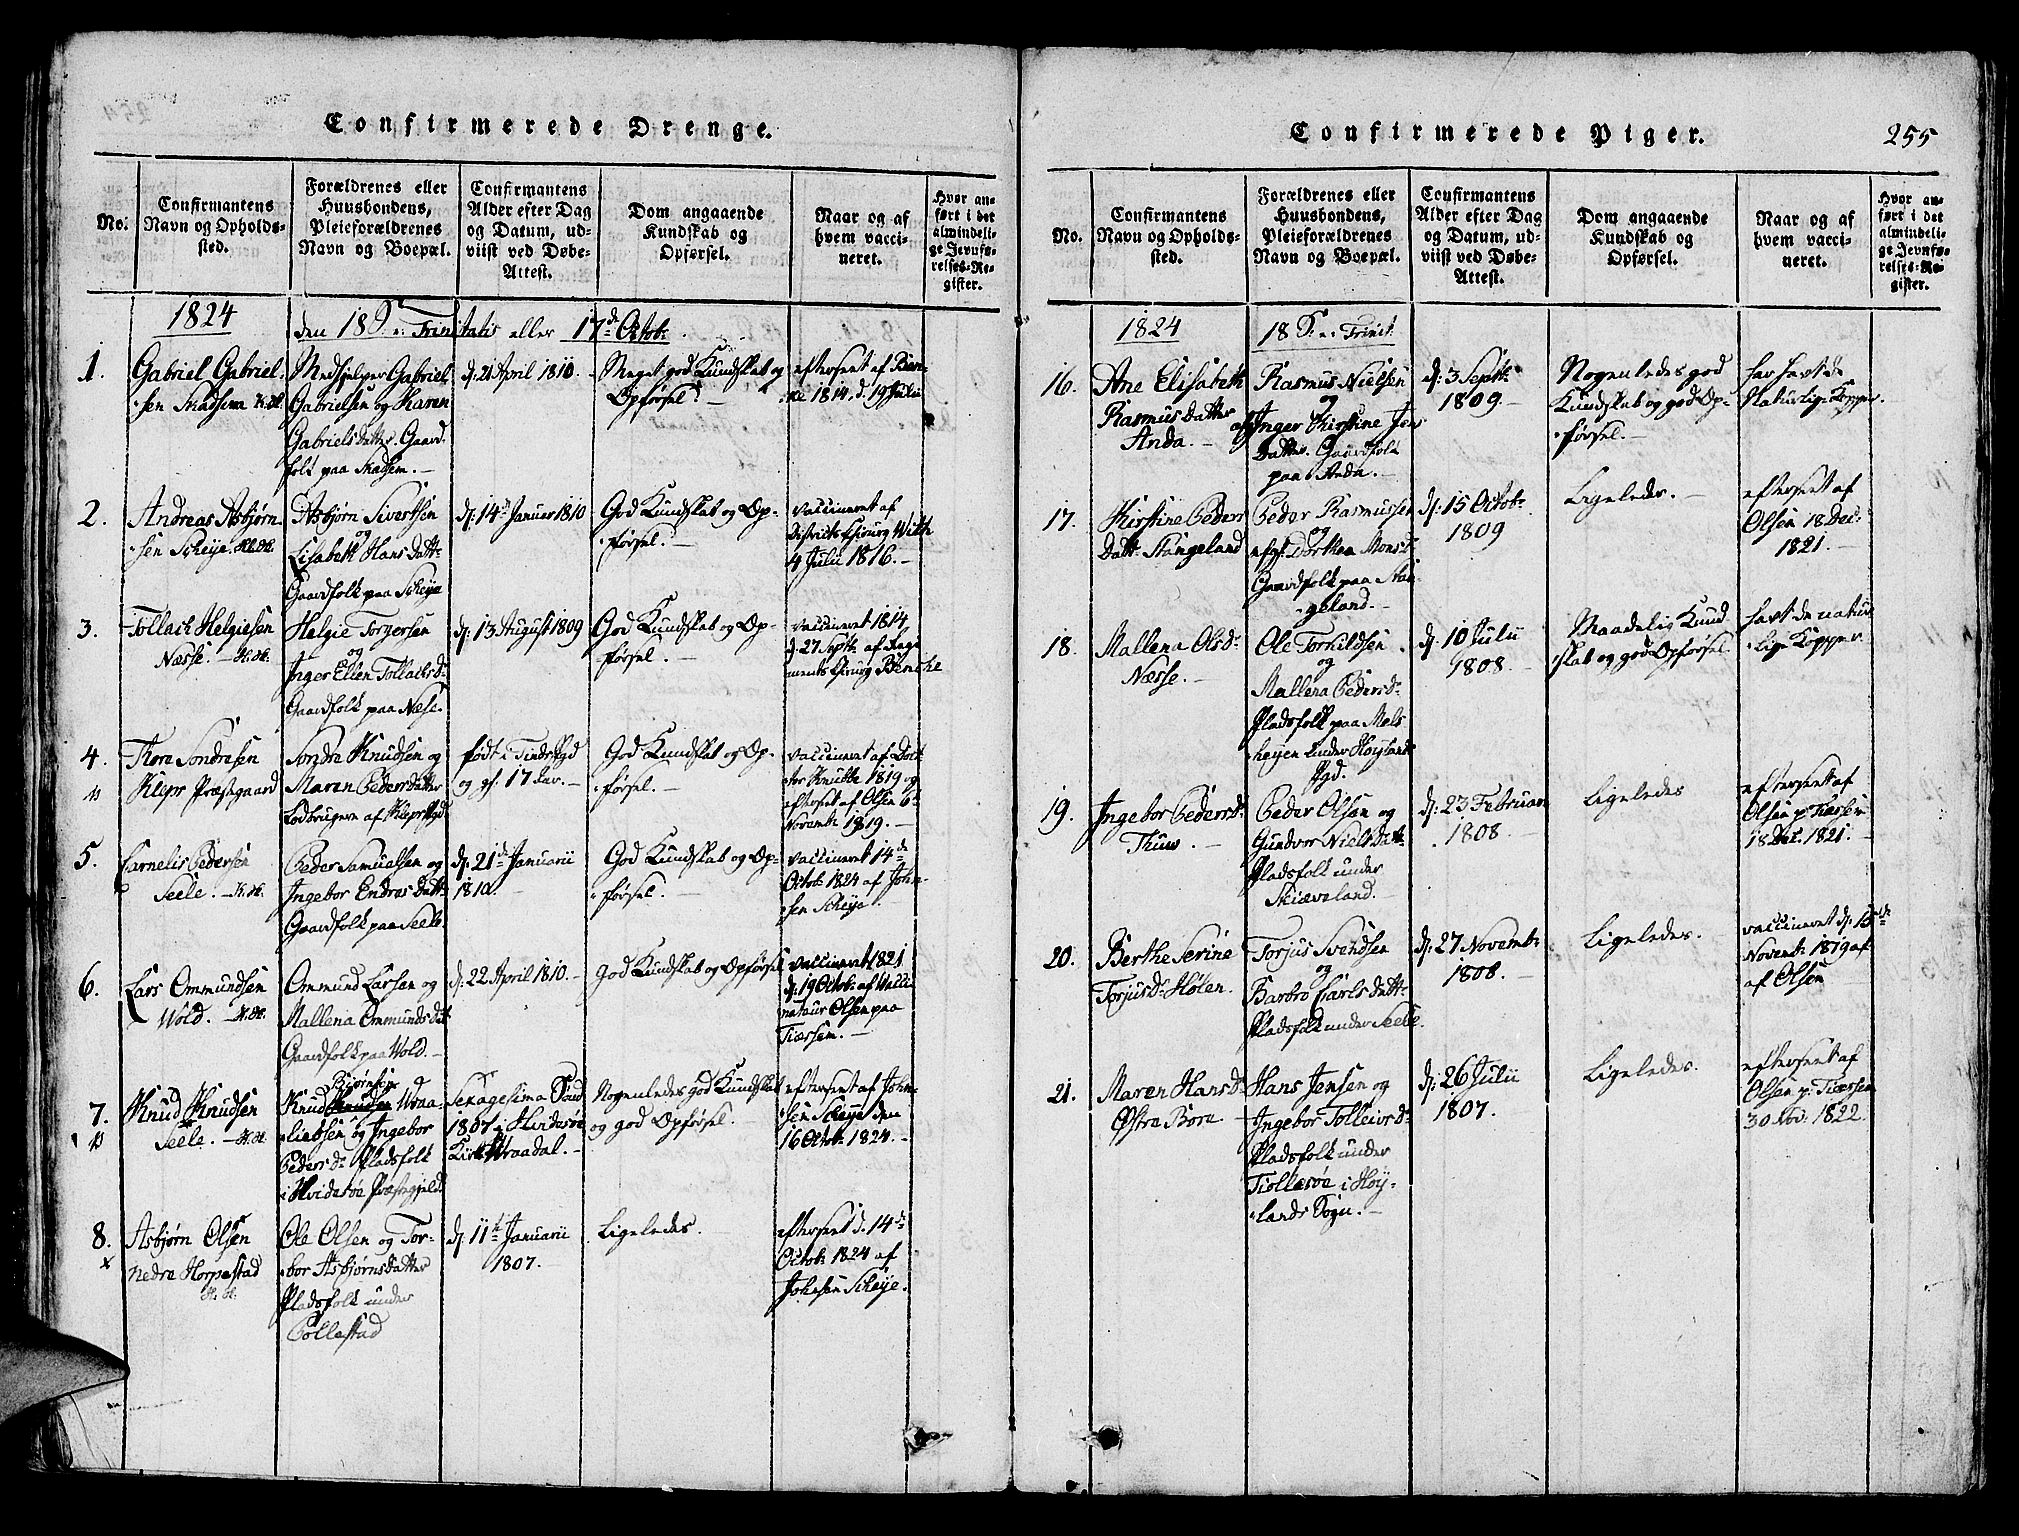 Confirmerede Drenge.
No.
Confirmantens
Navn og Opholds-
sted.
Forældrenes eller
Huusbondens,
Pleieforældrenes
Navn og Boepæl.
Confirmantens
Alder efter Dag
og Datum, ud-
viist ved Døbe-
Attest.
Dom angaaende
Kundskab og
Opførsel.
Naar og af
hvem vacci-
neret.
Hvor an-
ført i det
almindeli-
ge Jevnfø-
relses-Re-
gister.
1824
den 18 S. e. Trinitatis eller 17de Octob:
1.
Gabriel Gabriel-
sen Skadsem
Medhjelper Gabriel
Gabrielsen og Karen
Gabrielsdatter. Gaard-
folk paa Skadsem.
d: 21 April 1810.
Meget god Kundskab og
Opførsel.
efterseet af
1814. d. 19 Julii
2.
Andreas Asbjørn-
sen Scheje
Asbjørn Sivertsen
og
Lisabeth Hans datt:
Gaardfolk paa Scheje
d: 14de Januar 1810
God Kundskab og Op-
førsel.
vaccineret af
Districts Chirurg With
4 Julii 1816.
3.
Tollach Helgiesen
Næsse.
Helgie Torgersen
og
Inger Elien Tollachsd:
Gaardfolk paa Næse.
d: 13 August 1809
God Kundskab og Op-
førsel.
vaccineret 1814
d. 27 Septb: af Rege-
ments Chirurg Bencke
4.
Thore Sondresen
Klepp Præstegaard
Sondre Knudsen og
Maren Pedersdatter
Lodbrugere af Klepp Pgd
født i Tinds Pgd
og gl. 17 Aar.
God Kundskab og Op-
førsel.
vaccineret af Doc-
tor Knubbe 1819 og
efterseet af Olsen 6te
Novemb: 1819.
5.
Cornelis Pedersen
Seele.
Peder Samuelsen og
Ingebor Endresdatt:
Gaardfolk paa Seele
d: 21de Januarii
1810.
God Kundskab og Op-
førsel.
vaccineret 14de
Octob: 1824 af John-
sen Scheje
6.
Lars Ommundsen
Wold.
Ommund Larsen og
Mallena Ommundsdat
Gaardfolk paa Wold.
d: 22 April 1810.
God Kundskab og Opførsel
vaccineret 1821
d: 19 Octob: af Vacci-
nateur Olsen paa
Tiærsem.
7.
Knud Knudsen
Seele.
Bjørnsen
Knud Wraa-
liebsen og Ingebor
Peders d: Pladsfolk
i Hvidesøe Præstegjeld
Sexagesima Sønd
1807 i Hvidesøe
Kirke Wraadal.
Nogenledes god Kundskab
og god Opførsel.
efterseet af John-
sen Scheje den
16 Octob: 1824.
8.
Asbjørn Olsen
Nedre Horpestad
Ole Olsen og Tor-
bor Asbjørnsdatter
Pladsfolk under
Pollestad
d: 11te Januarii
1807.
Ligeledes.
efterseet d. 14de
Octob: 1824 af
Johnsen Scheje.
Confirmerede Piger.
255
No.
Confirmantens
Navn og Opholds-
sted.
Forældrenes eller
Huusbondens,
Pleieforældrenes
Navn og Boepæl.
Confirmantens
Alder efter Dag
og Datum, ud-
viist ved Døbe-
Attest.
Dom angaaende
Kundskab og
Opførsel.
Naar og af
hvem vacci-
neret.
Hvor an-
ført i det
almindeli-
ge Jevnfø-
relses-Re-
gister.
1824
18 S. e. Trinit.
16.
Ane Elisabeth
Rasmusdatter
Anda.
Rasmus Nielsen
og
Inger Kirstine Jens
Datter. Gaardfolk
paa Anda.
d: 3 Septb:
1809.
Nogenledes god
Kundskab og god Op-
førsel.
har havt de
Naturlige Kopper.
17.
Kirstine Peders
Datt: Stangeland
Peder Rasmussen
og
Dorthea Monsd:
Gaardfolk paa Stan-
geland.
d: 15 Octob:
1809
Ligeledes.
efterseet af
Olsen 18 Dec:
1821.
18.
Mallena Olsd:
Næsse.
Ole Torkildsen
og
Mallena Pedersd:
Pladsfolk paa Mels-
heyen under Høylands
Pgd.
d: 10 Julii
1808.
Maadelig Kund-
skab og god Opførsel
havt de natur-
lige Kopper.
19.
Ingebor Pedersd:
Thuu.
Peder Olsen og
Gundvor Nielsdatt:
Pladsfolk under
Skiæveland.
d: 23 Februari
1808.
Ligeledes
efterseet af
Olsen p. Tiærsem
18 Dec. 1821.
20.
Berthe Serine
Torjusd: Hølen.
Torjus Svendsen
og
Barbro Carlsdatt:
Pladsfolk under Seele.
d: 27 Novemb:
1808.
Ligeledes.
vaccineret d: 15de
Novemb: 1819 af
af Olsen
21.
Maren Hansd:
Østre Bore
Hans Jensen og
Ingebor Tolleivsd:
Pladsfolk under
Tiøllesøe i Høy-
lands Sogn.
d: 26 Julii
1807.
Ligeledes.
efterseet af
Olsen p: Tiærsem
30 Nov. 1822.